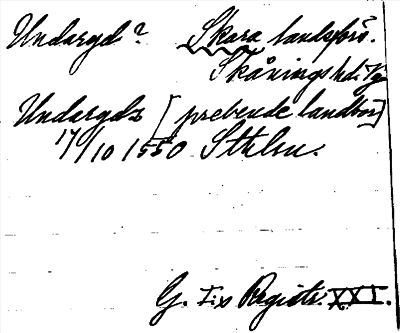 Undaryd? Skara landsförs.
Skånings hd. Vg
Undaryds [prebende landbor]
17/10 1550 Sthlm.
G. I:s Registr. XXI.